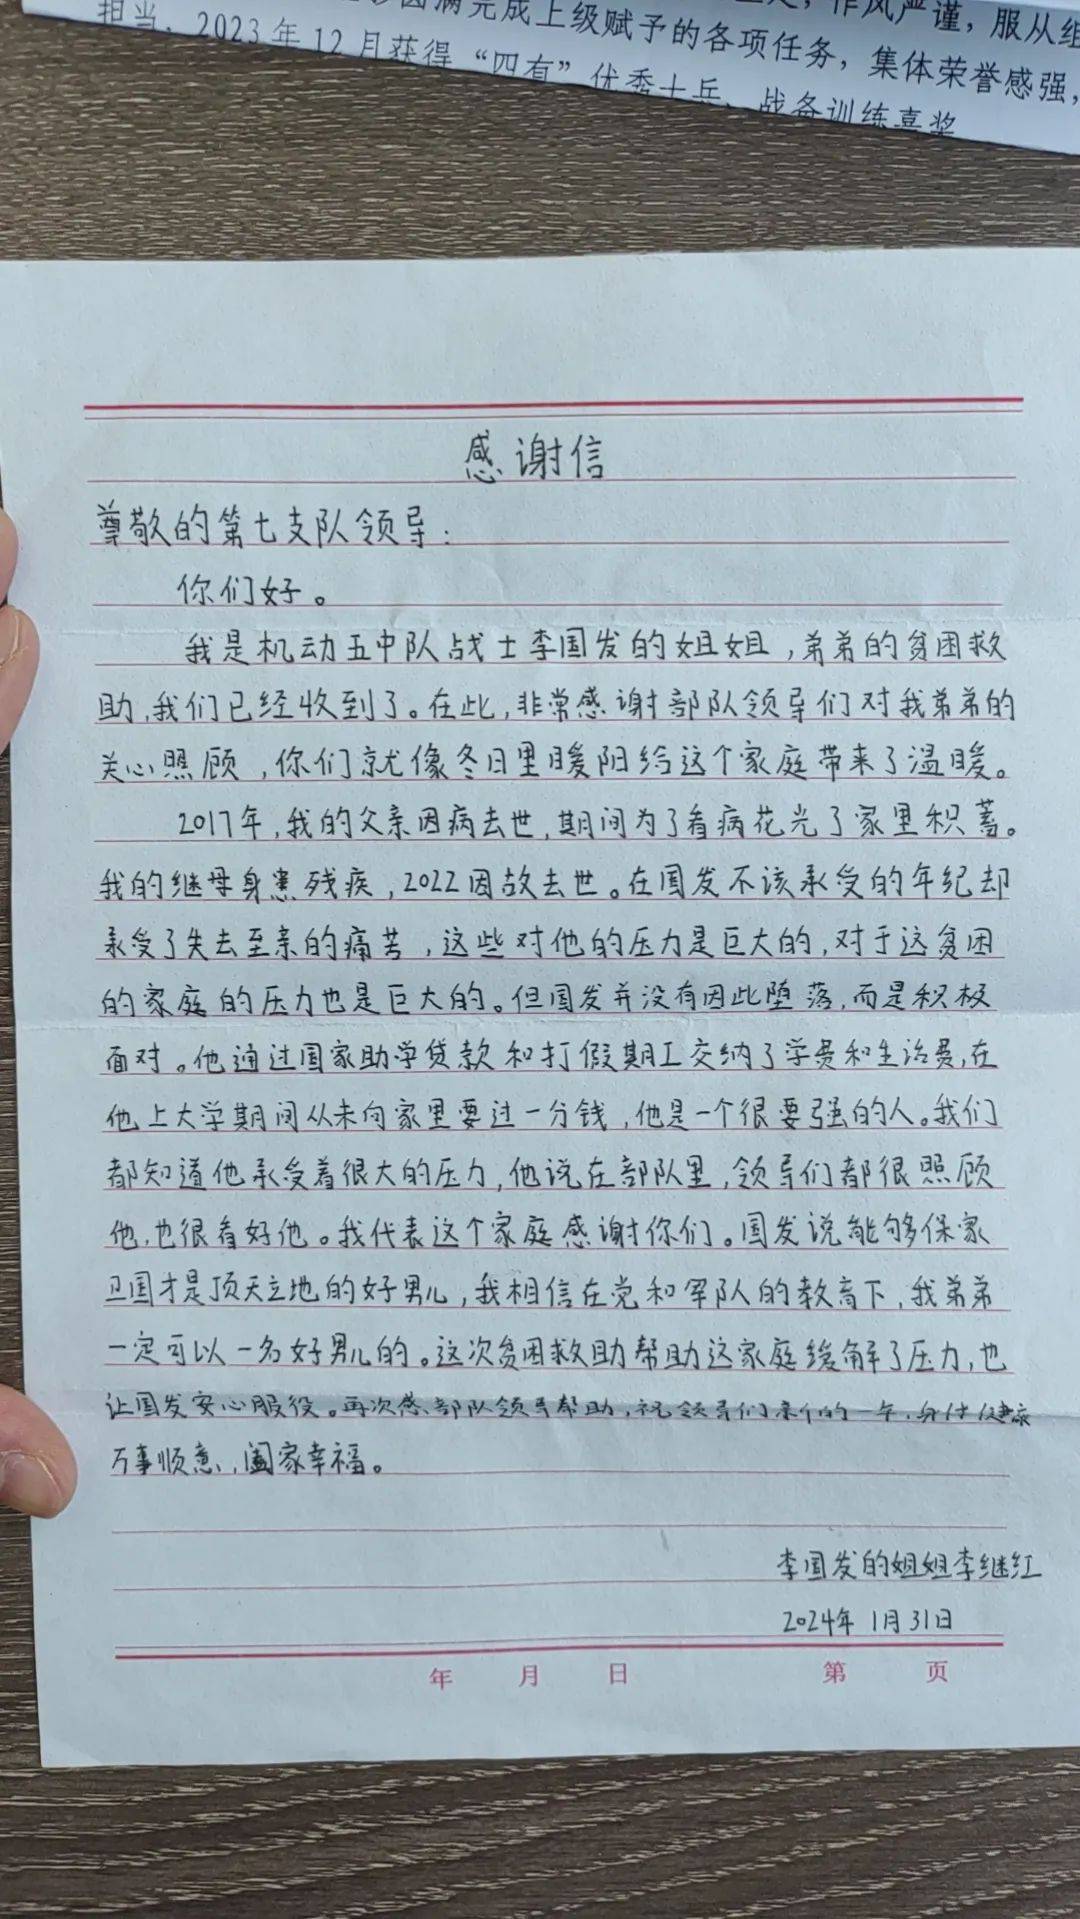 圆满完成上级赋予的各项任务，集体荣誉感强，
作风严谨，服从组
担当，2023年12月获得“四有”优秀士兵、战备训练嘉奖
感谢信
尊敬的第七支队领导：
你们好。
我是机动五中队战士李国发的姐姐，弟弟的贫困救
助，我们已经收到了。在此，非常感谢部队领导们对我弟弟的
关心照顾，你们就像冬日里暖阳给这个家庭带来了温暖。
2017年，我的父亲因病去世，期间为了看病花光了家里积蓄。
我的继母身患残疾，2022因故去世。在国发不该承受的年纪却
承受了失去至亲的痛苦，这些对他的压力是巨大的，对于这贫困
的家庭的压力也是巨大的。但国发并没有因此堕落，而是积极
面对。他通过国家助学贷款和打假期工交纳了学费和生活费，在
他上大学期间从未向家里要过一分钱，他是一个很要强的人。我们
都知道他承受着很大的压力，他说在部队里，领导们都很照顾
他，也很看好他。我代表这个家庭感谢你们。国发说能够保家
卫国才是顶天立地的好男儿，我相信在党和军队的教育下，我弟弟
一定可以一名好男儿的。这次贫困救助帮助这家庭缓解了压力，也
让国发安心服役。再次感部队领导帮助，祝领导们新的一年，身体健康
万事顺意，阖家幸福。
李国发的姐姐李继红
2024年1月31日
年 月 日 第 页